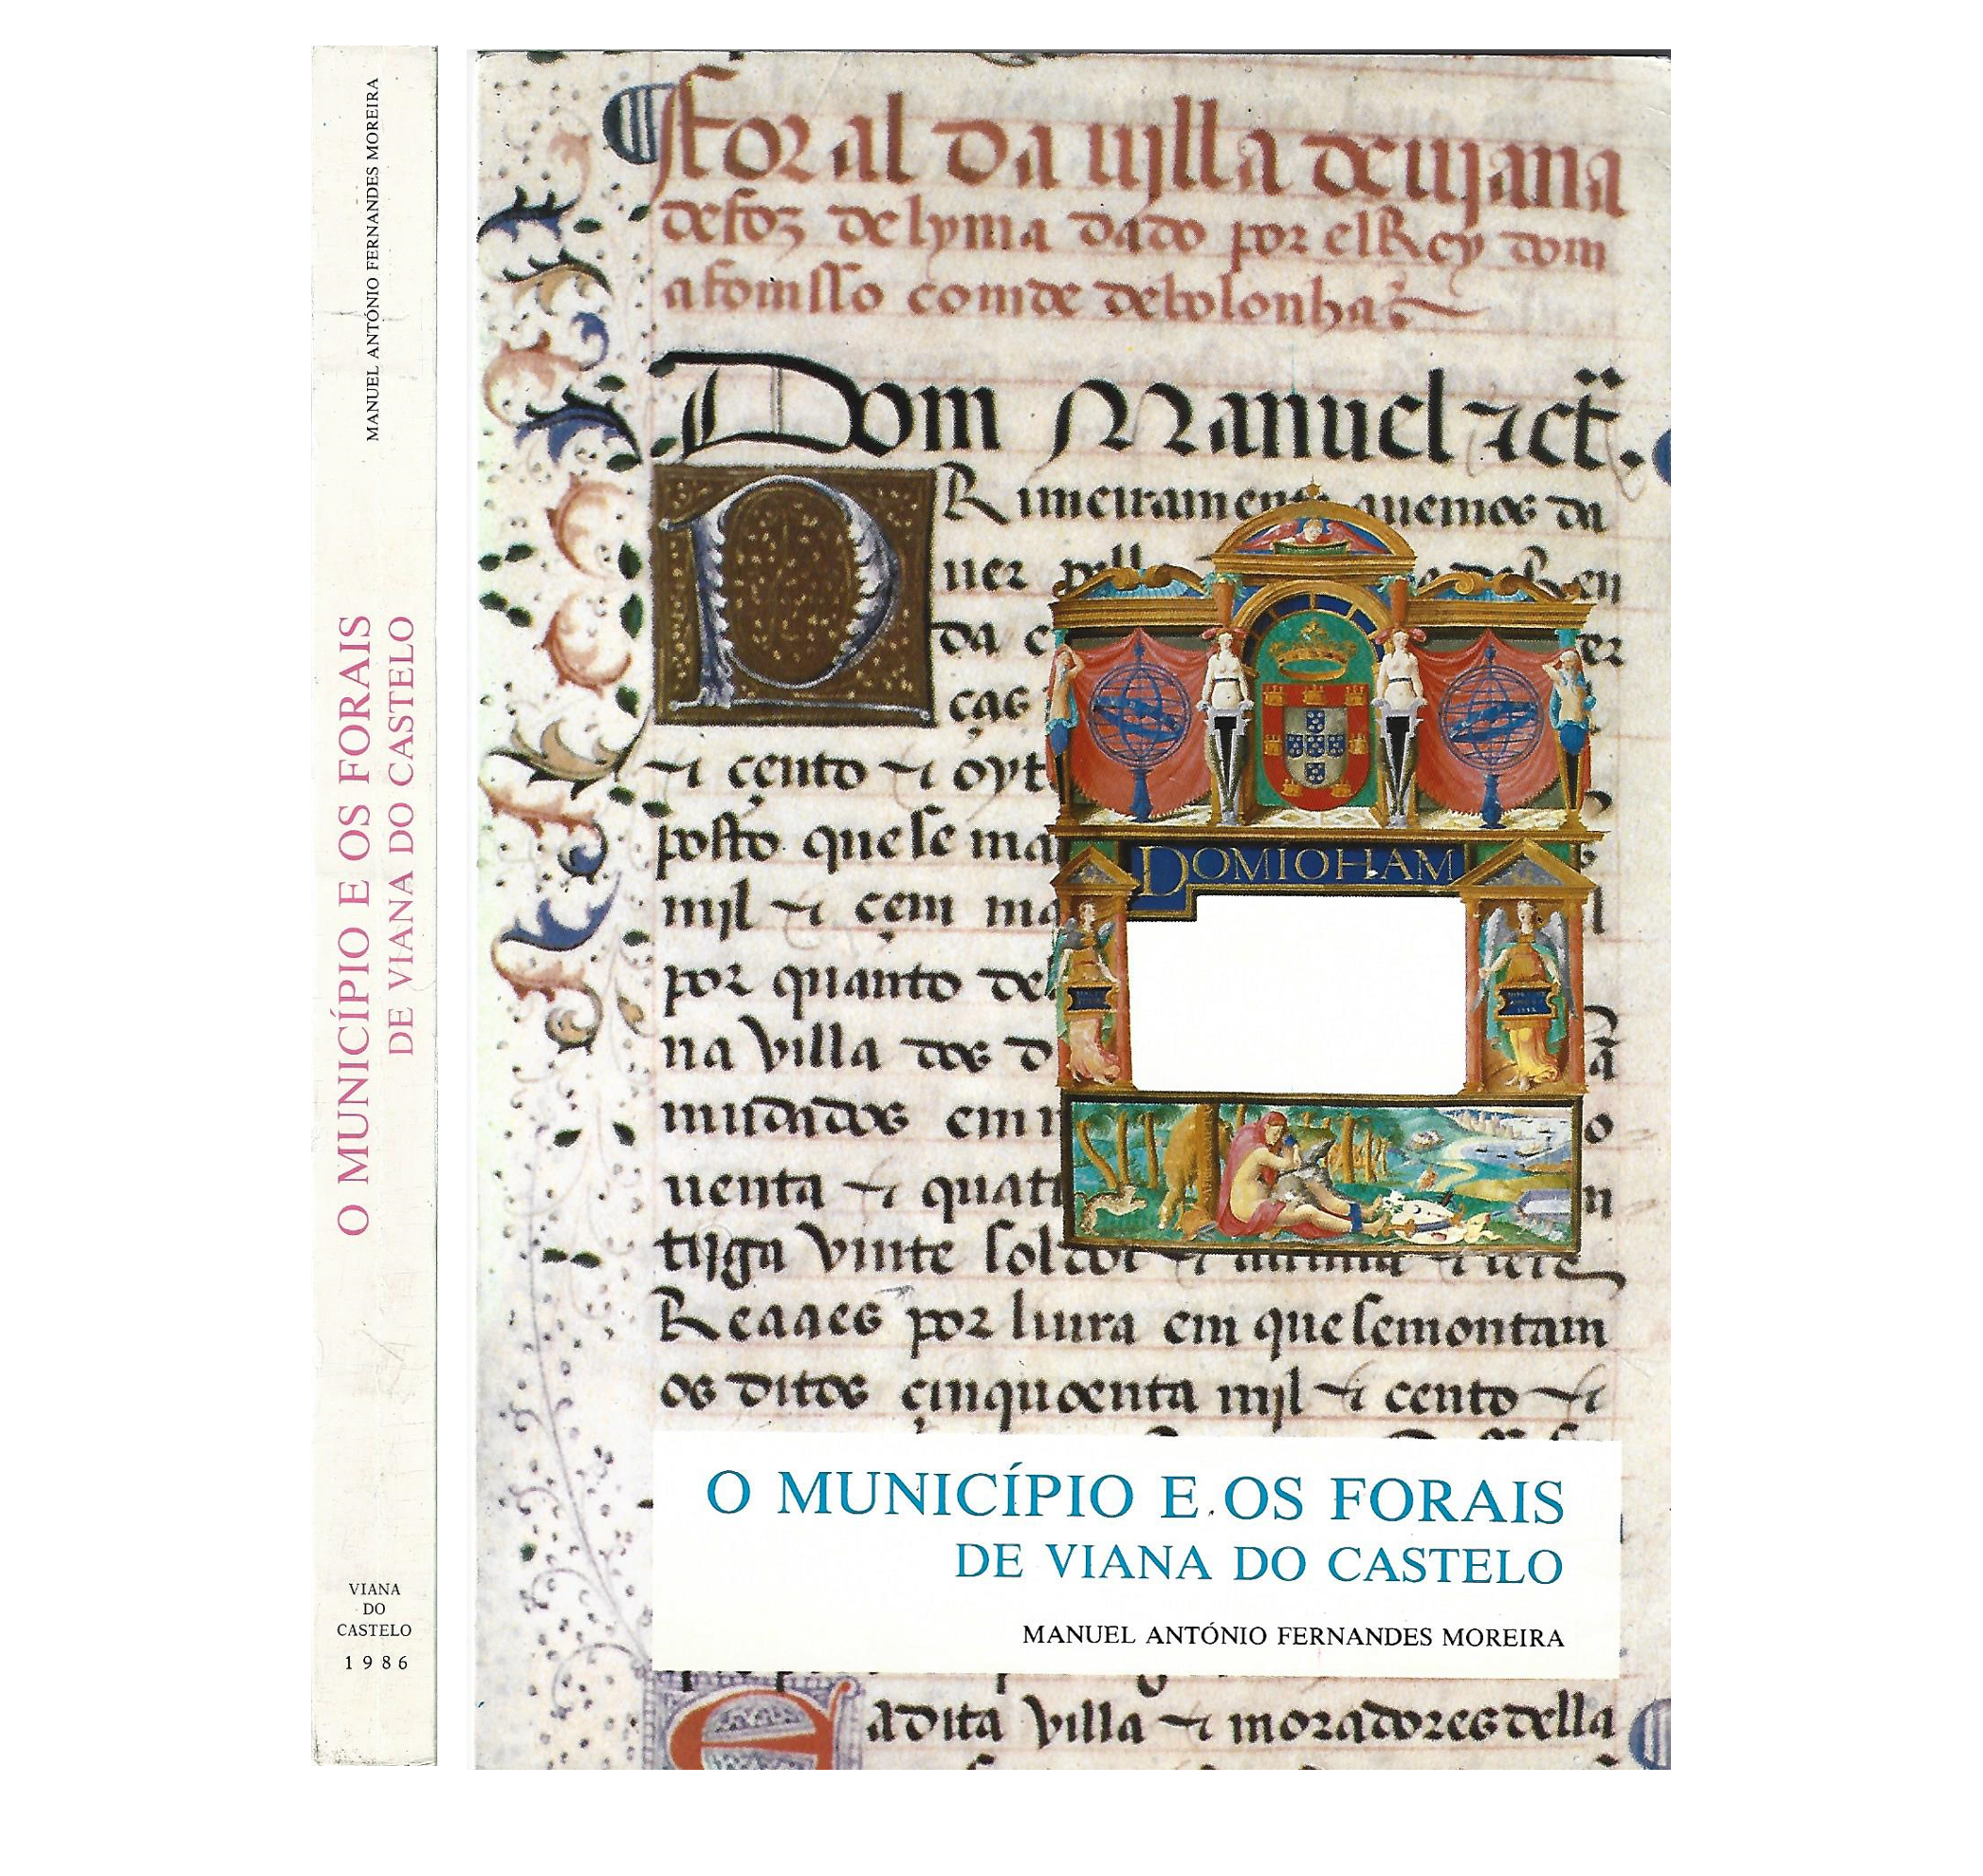 MANUEL ANTÓNIO FERNANDES MOREIRA
O MUNICÍPIO E OS FORAIS
DE VIANA DO CASTELO
VIANA
DO
CASTELO
1986
fforal da ujlla de ujana
de foz de lyma dado por el Rey dom
afomsso comde de bolonha
Dom Manuel
da
uer
da
ças
cento oyt
posto que se ma
mjl çem
por quanto
na villa dos
mudados em
uenta quat
vinte
Reaaes por liura em que se montam
os ditos çinquoenta mjl cento
DOMIOHAM
O MUNICÍPIO E OS FORAIS
DE VIANA DO CASTELO
MANUEL ANTÓNIO FERNANDES MOREIRA
adita villa moradores della